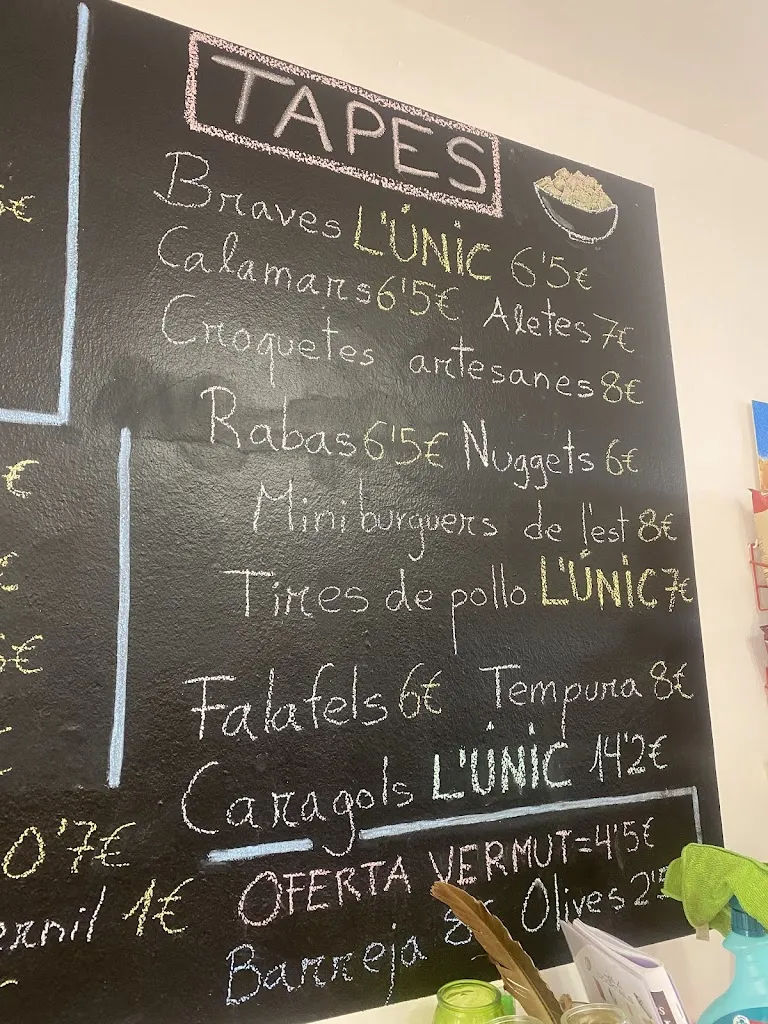 TAPES
Braves L'ÚNIC 6'5€
Calamars 6'5€ Aletes 7€
Croquetes artesanes 8€
Rabas 6'5€ Nuggets 6€
Mini burguers de l'est 8€
Tires de pollo L'ÚNIC 7€
Falafels 6€ Tempura 8€
Caragols L'ÚNIC 14'2€
OFERTA VERMUT=4'5€
Barreja 8€ Olives 2'5
0'7€
ernil 1€